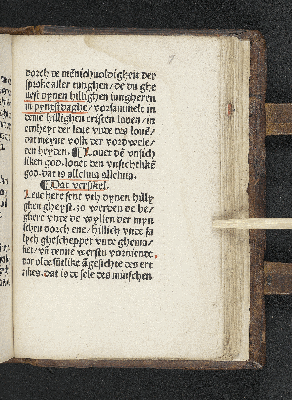 dorch de mēnichuoldigheit der
sprake aller tunghen / de du ghe
uest dynen hillighen iungheren
in pynxstdaghe / vorsammelt in
dene hillighen cristen louen / in
eynheyt der leue vnde des louē /
dat meyne volk der vordwele-
ten heyden. ¶ Louet dē vnsich
liken god. louet den vnsichtlikē
god. dat is alleluia alleluia.
¶ Dat versikel.
Leue here sent vth dynen hilly
ghen gheyst. zo werden de be
ghere vnde de wyllen der myn
schen dorch ene / hillich vnde sa
lych ghescheppet vnde ghema
ket / vn̄ denne werstu vornieende.
dat olde sūtlike āgesichte des ert
rikes. dat is de sele des minschen